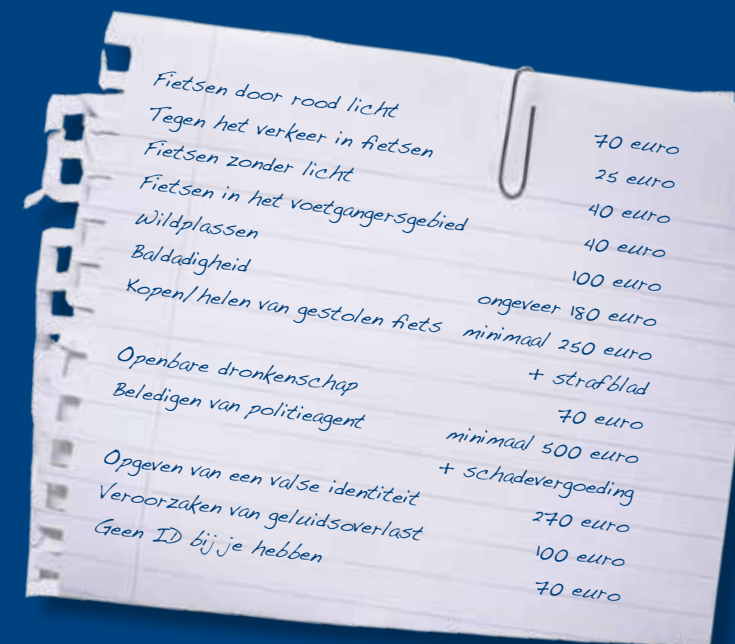 Fietsen door rood licht 70 euro
Tegen het verkeer in fietsen 25 euro
Fietsen zonder licht 40 euro
Fietsen in het voetgangersgebied 40 euro
Wildplassen 100 euro
Baldadigheid ongeveer 180 euro
Kopen/helen van gestolen fiets minimaal 250 euro
+ strafblad
Openbare dronkenschap 70 euro
Beledigen van politieagent minimaal 500 euro
+ schadevergoeding
Opgeven van een valse identiteit 270 euro
Veroorzaken van geluidsoverlast 100 euro
Geen ID bij je hebben 70 euro